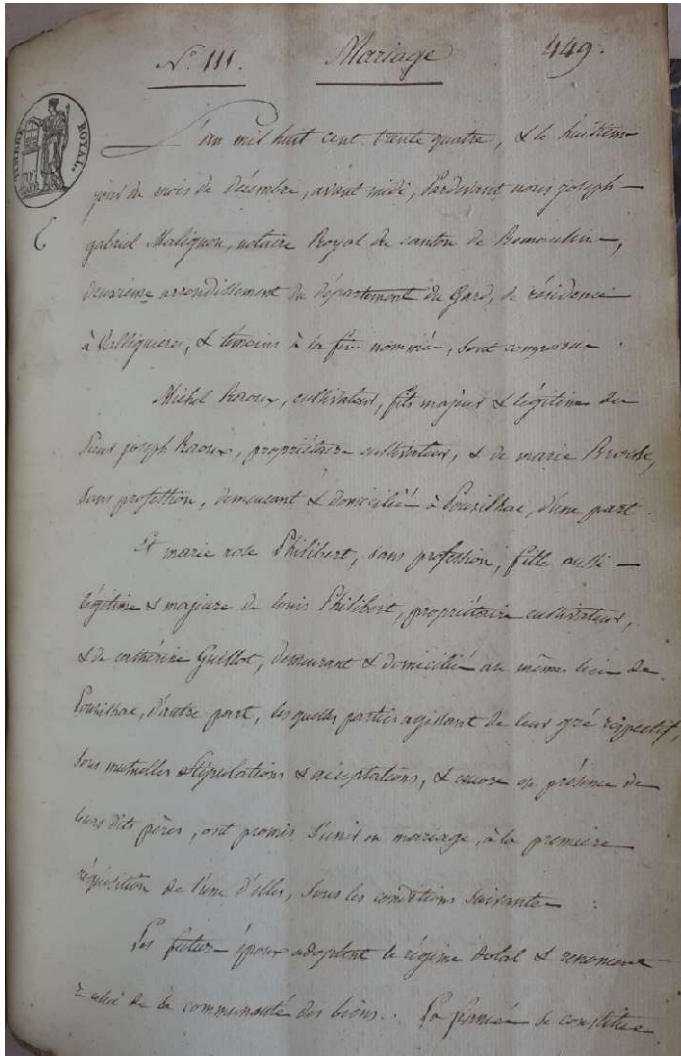 N.° 111. Mariage 449.
TIMBRE ROYAL.
L'an mil huit cent trente quatre, & le huitième
jour du mois de décembre, avant midi, Pardevant nous joseph-
gabriel Malignon, notaire Royal du canton de Remoulin-,
deuxieme arrondissement du département du Gard, de résidence
à Valliguieres, & témoins à la fin nommés, sont comparus.
Michel Raoux, cultivateur, fils majeur & légitime du
sieur joseph Raoux, propriétaire cultivateur, & de marie
sans profession, demeurant & domicilié à Pouzilhac, d'une part.
Et marie rose Philibert, sans profession, fille aussi-
légitime & majeure de louis Philibert, propriétaire cultivateur,
& de cathérine Guillot, demeurant & domicilié au même lieu de
Pouzilhac, d'autre part, lesquelles parties agissant de leur gré respectif,
sous mutuelles stipulations & acceptations, & encore en présence de
leurs dits pères, ont promis s'unir en mariage, à la première
réquisition de l'une d'elles, sous les conditions suivantes:
Les futurs époux adoptent le régime dotal & renoncent
à celui de la communauté des biens.. La fiancée se constitue